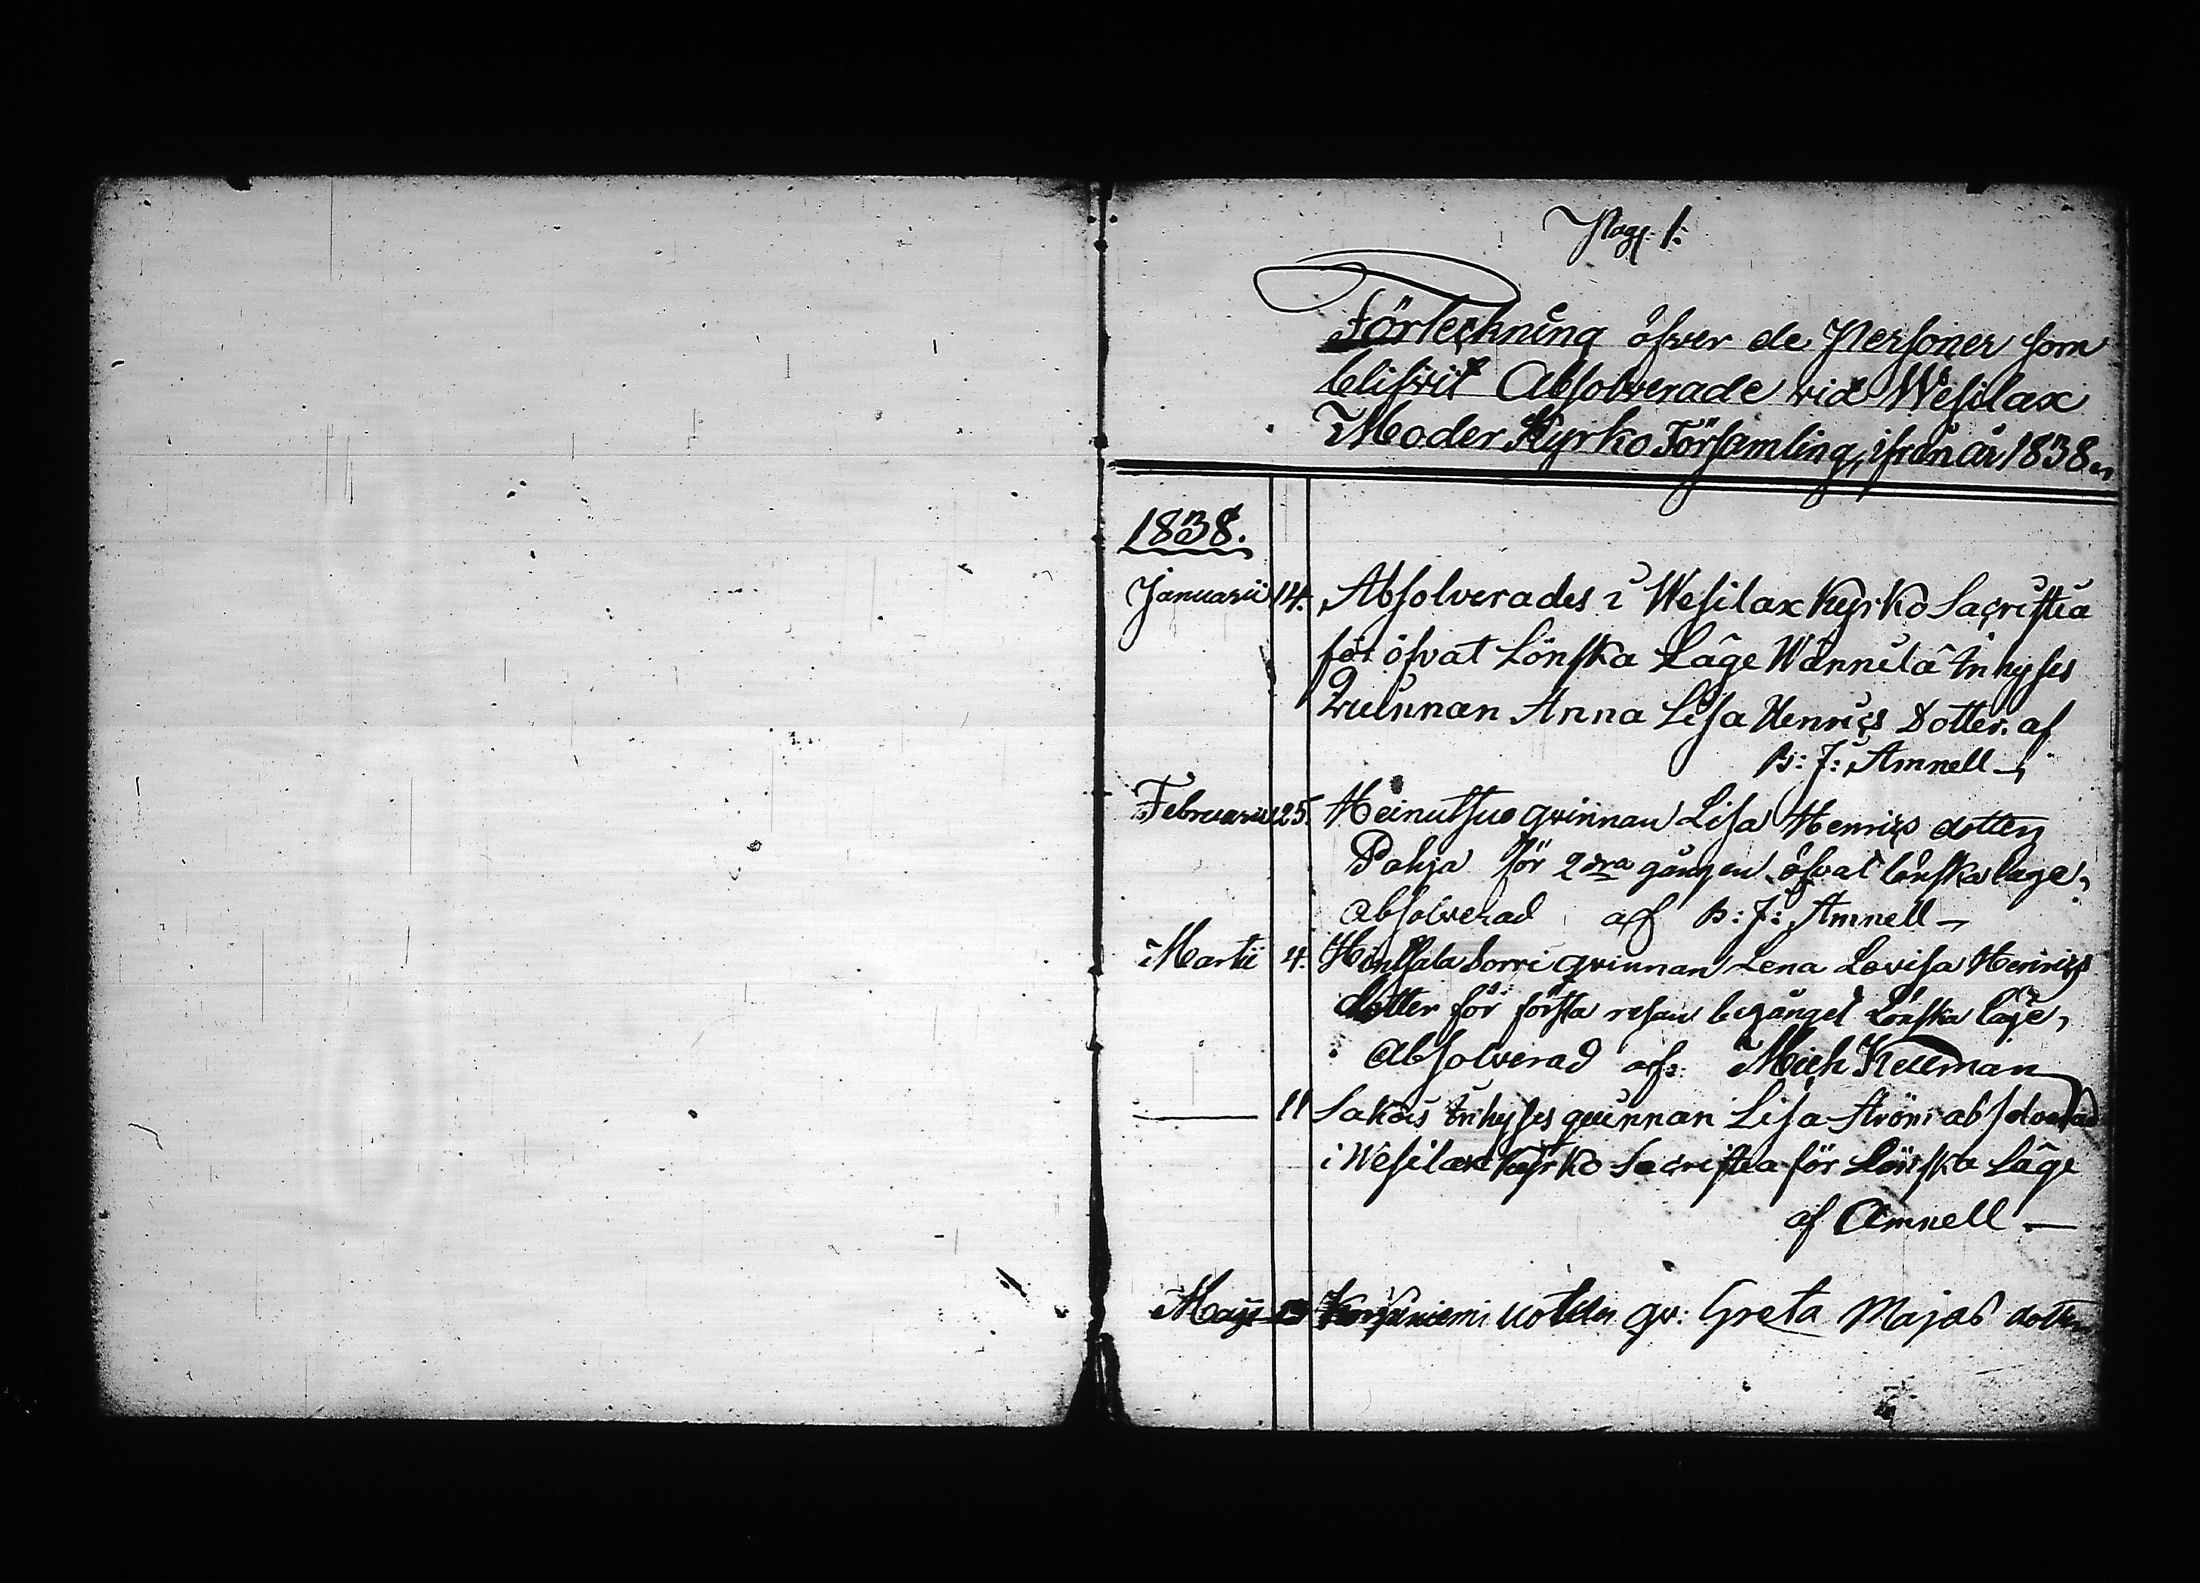 Pag: 1:
Förteckning öfver de Personer som
blifvit Absolverade vid Wesilax
Moder Kyrko Församling, ifrån år 1838
1838.
Januarii 14. Absolverades i Wesilax Kyrko Sacristia
för öfvat Lönska Läge Wännilä Inhyses
Quinnan Anna Lisa Henrics Dotter. af
B: J: Amnell
Februarii 25. Heinutsuo qvinnan Lisa Henrics dotter
Pohja för 2dra gången öfvat lönska läge,
Absolverad af B: J: Amnell
Martii 4. Sorri qvinnan Lena Lovisa Henrics
dotter för första resan begånget Lönska läge,
Absolverad af: Mich Kellman
11 Sakois Inhyses quinnan Lisa Ström absolverad
i Wesilax Kyrko Sacristia för Lönska Läge
af Amnell
Maji qv: Greta Majas dotter